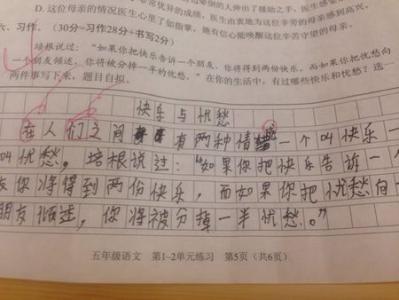 D. 这位母亲的情况医生心里了如指掌,她有信心能唤醒这位辛苦守望的母亲。
六、习作。(30分=习作28分+书写2分)
培根说过:“如果你把快乐告诉一个朋友,你将得到两份快乐,而如果你把忧愁向
一个朋友倾述,你将被分掉一半的忧愁。”在你的生活中,有过哪些快乐和忧愁?选一
两件事写下来,题目自拟。
快乐与忧愁
在人们之间 有两种情 一个叫快乐一
叫忧愁,培根说过:“如果你把快乐告诉一个
友你将得到两份快乐,而如果你把忧愁向一
朋友倾述,你将被分掉一半忧愁。”
五年级语文 第1-2单元练习 第5页(共6页)